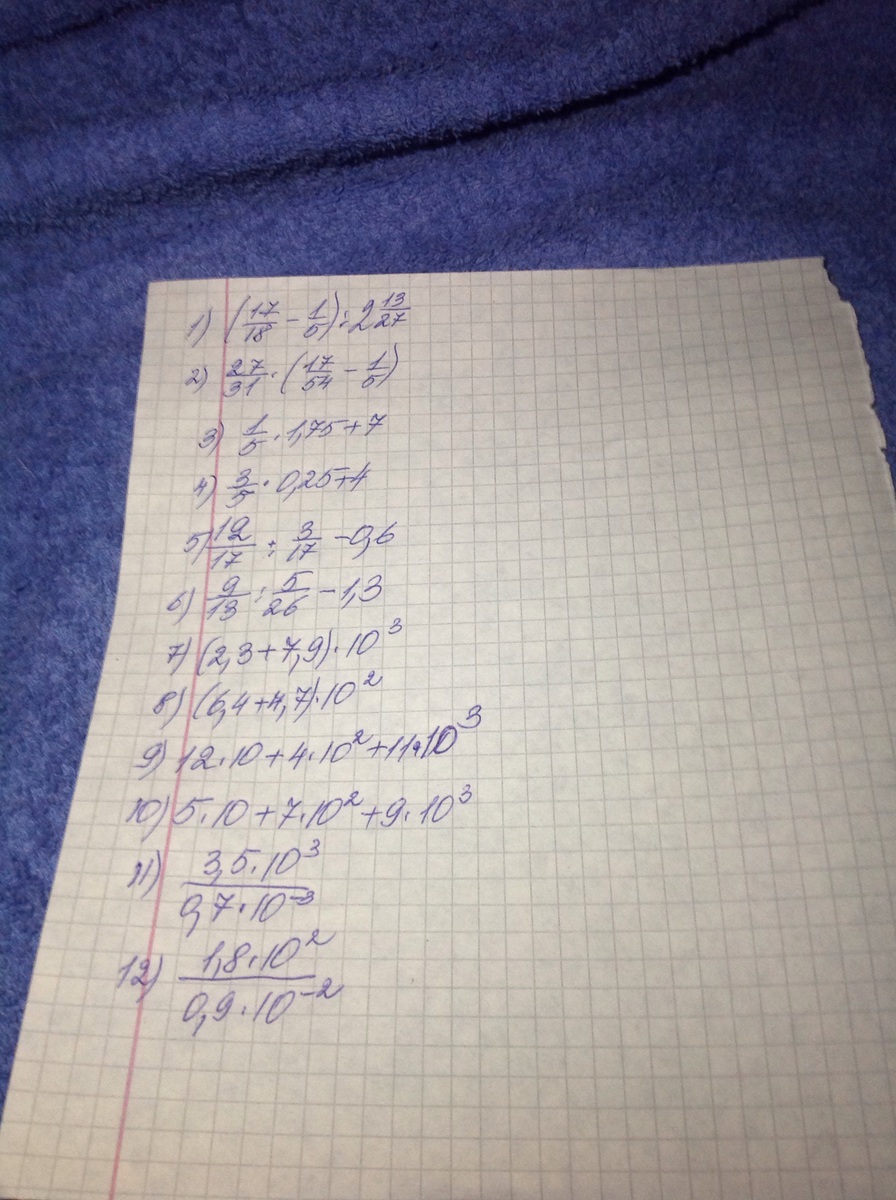 1) (17/18 - 1/5) : 2 13/27
2) 27/31 · (17/54 - 1/5)
3) 1/5 · 1,75 + 7
4) 3/5 · 0,25 + 4
5) 12/17 : 3/17 - 0,6
6) 9/13 : 5/26 - 1,3
7) (2,3 + 7,9) · 10³
8) (6,4 + 4,7) · 10²
9) 12 · 10 + 4 · 10² + 11 · 10³
10) 5 · 10 + 7 · 10² + 9 · 10³
11) 3,5 · 10³ / 0,7 · 10⁻³
12) 1,8 · 10² / 0,9 · 10⁻²